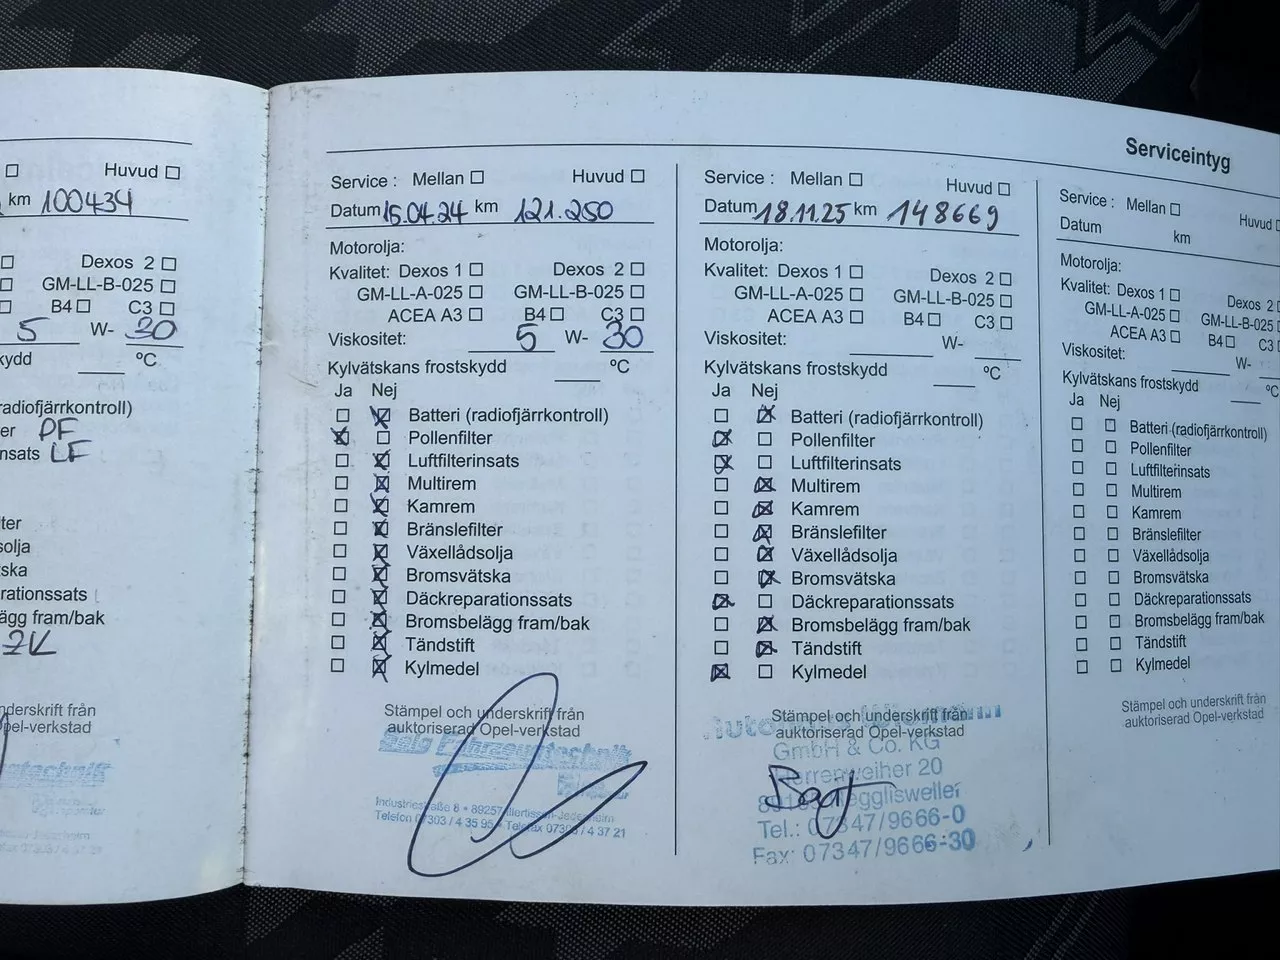 Serviceintyg
Huvud
km 100434
Dexos 2
GM-LL-B-025
B4 C3
5 W- 30
skydd ____ ºC
radiofjärrkontroll)
er PF
nsats LF
ter
olja
ska
rationssats
ägg fram/bak
ZK
nderskrift från
pel-verkstad
Service : Mellan Huvud
Datum 15.04.24 km 121.250
Motorolja:
Kvalitet: Dexos 1 Dexos 2
GM-LL-A-025 GM-LL-B-025
ACEA A3 B4 C3
Viskositet: 5 W- 30
Kylvätskans frostskydd ____ ºC
Ja Nej
Batteri (radiofjärrkontroll)
Pollenfilter
Luftfilterinsats
Multirem
Kamrem
Bränslefilter
Växellådsolja
Bromsvätska
Däckreparationssats
Bromsbelägg fram/bak
Tändstift
Kylmedel
Stämpel och underskrift från
auktoriserad Opel-verkstad
Fahrzeugtechnik
Industriestraße 8 • 89257 Illertissen-Jedesheim
Telefon 07303 / 4 35 95 • Telefax 07303 / 4 37 21
Service : Mellan Huvud
Datum 18.11.25 km 148669
Motorolja:
Kvalitet: Dexos 1 Dexos 2
GM-LL-A-025 GM-LL-B-025
ACEA A3 B4 C3
Viskositet: ____ W- ____
Kylvätskans frostskydd ____ ºC
Ja Nej
Batteri (radiofjärrkontroll)
Pollenfilter
Luftfilterinsats
Multirem
Kamrem
Bränslefilter
Växellådsolja
Bromsvätska
Däckreparationssats
Bromsbelägg fram/bak
Tändstift
Kylmedel
Stämpel och underskrift från
auktoriserad Opel-verkstad
GmbH & Co. KG
Herrenweiher 20
Tel.: 07347/9666-0
Fax: 07347/9666-30
Service : Mellan Huvud
Datum km
Motorolja:
Kvalitet: Dexos 1 Dexos 2
GM-LL-A-025 GM-LL-B-025
ACEA A3 B4 C3
Viskositet: ____ W-
Kylvätskans frostskydd ____ ºC
Ja Nej
Batteri (radiofjärrkontroll)
Pollenfilter
Luftfilterinsats
Multirem
Kamrem
Bränslefilter
Växellådsolja
Bromsvätska
Däckreparationssats
Bromsbelägg fram/bak
Tändstift
Kylmedel
Stämpel och underskrift från
auktoriserad Opel-verkstad